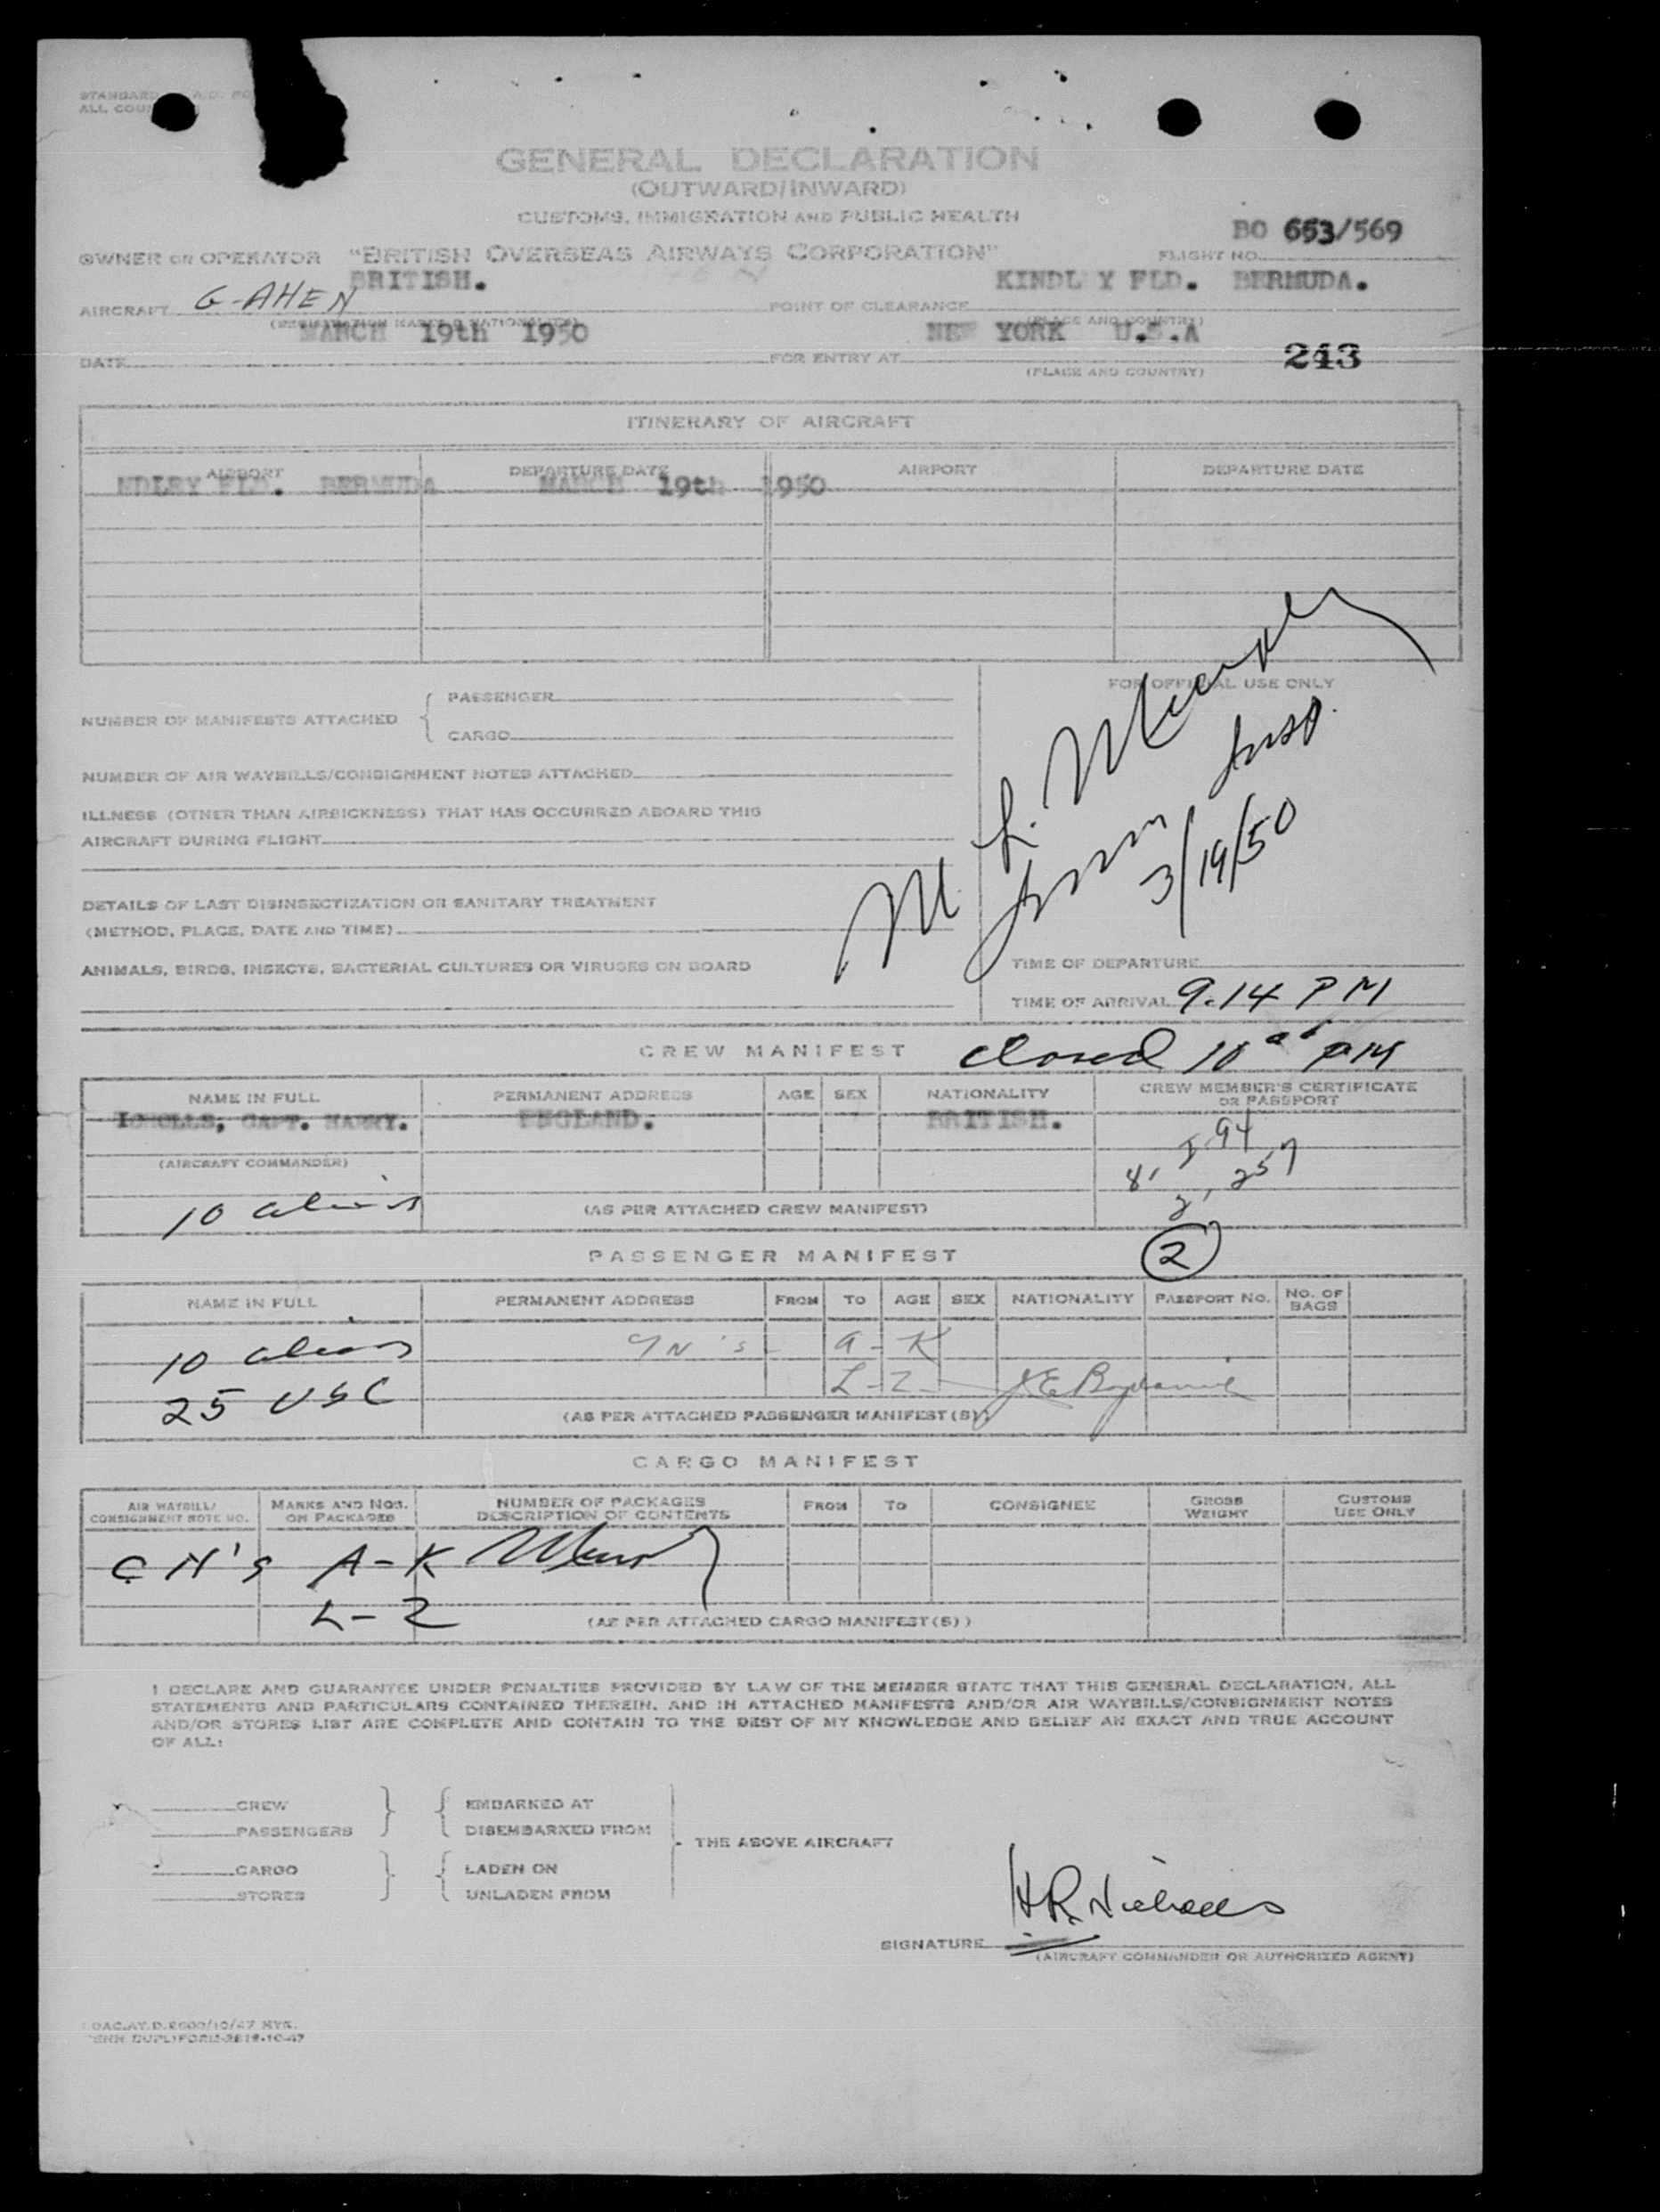 STANDARD
ALL COUN
GENERAL DECLARATION
(OUTWARD/INWARD)
CUSTOMS, IMMIGRATION AND PUBLIC HEALTH
BO 653/569
OWNER OR OPERATOR "BRITISH OVERSEAS AIRWAYS CORPORATION" FLIGHT NO.
BRITISH. KINDL Y FLD. BERMUDA.
AIRCRAFT G-AHEN POINT OF CLEARANCE
(REGISTRATION MARKS & NATIONALITY) (PLACE AND COUNTRY)
MARCH 19th 1950 NEW YORK U.S.A
DATE FOR ENTRY AT 243
(PLACE AND COUNTRY)
ITINERARY OF AIRCRAFT
AIRPORT DEPARTURE DATE AIRPORT DEPARTURE DATE
NDLEY FLD. BERMUDA MARCH 19th 1950
FOR OFFICIAL USE ONLY
PASSENGER
NUMBER OF MANIFESTS ATTACHED
CARGO
NUMBER OF AIR WAYBILLS/CONSIGNMENT NOTES ATTACHED
ILLNESS (OTHER THAN AIRSICKNESS) THAT HAS OCCURRED ABOARD THIS
AIRCRAFT DURING FLIGHT
M. L.
Insp.
3/19/50
DETAILS OF LAST DISINSECTIZATION OR SANITARY TREATMENT
(METHOD, PLACE, DATE AND TIME)
ANIMALS, BIRDS, INSECTS, BACTERIAL CULTURES OR VIRUSES ON BOARD
TIME OF DEPARTURE
TIME OF ARRIVAL 9.14 PM
CREW MANIFEST closed 10 PM
NAME IN FULL PERMANENT ADDRESS AGE SEX NATIONALITY CREW MEMBER'S CERTIFICATE OR PASSPORT
CAPT. HARRY. ENGLAND. BRITISH.
(AIRCRAFT COMMANDER)
10 aliens (AS PER ATTACHED CREW MANIFEST)
PASSENGER MANIFEST 2
NAME IN FULL PERMANENT ADDRESS FROM TO AGE SEX NATIONALITY PASSPORT NO. NO. OF BAGS
10 aliens A-K
25 USC L-Z
(AS PER ATTACHED PASSENGER MANIFEST(S))
CARGO MANIFEST
AIR WAYBILL/ CONSIGNMENT NOTE NO. MARKS AND NOS. ON PACKAGES NUMBER OF PACKAGES DESCRIPTION OF CONTENTS FROM TO CONSIGNEE GROSS WEIGHT CUSTOMS USE ONLY
A-K
L-Z (AS PER ATTACHED CARGO MANIFEST(S))
I DECLARE AND GUARANTEE UNDER PENALTIES PROVIDED BY LAW OF THE MEMBER STATE THAT THIS GENERAL DECLARATION, ALL
STATEMENTS AND PARTICULARS CONTAINED THEREIN, AND IN ATTACHED MANIFESTS AND/OR AIR WAYBILLS/CONSIGNMENT NOTES
AND/OR STORES LIST ARE COMPLETE AND CONTAIN TO THE BEST OF MY KNOWLEDGE AND BELIEF AN EXACT AND TRUE ACCOUNT
OF ALL:
CREW EMBARKED AT
PASSENGERS DISEMBARKED FROM
THE ABOVE AIRCRAFT
CARGO LADEN ON
STORES UNLADEN FROM
SIGNATURE H.R. Nicholls
(AIRCRAFT COMMANDER OR AUTHORIZED AGENT)